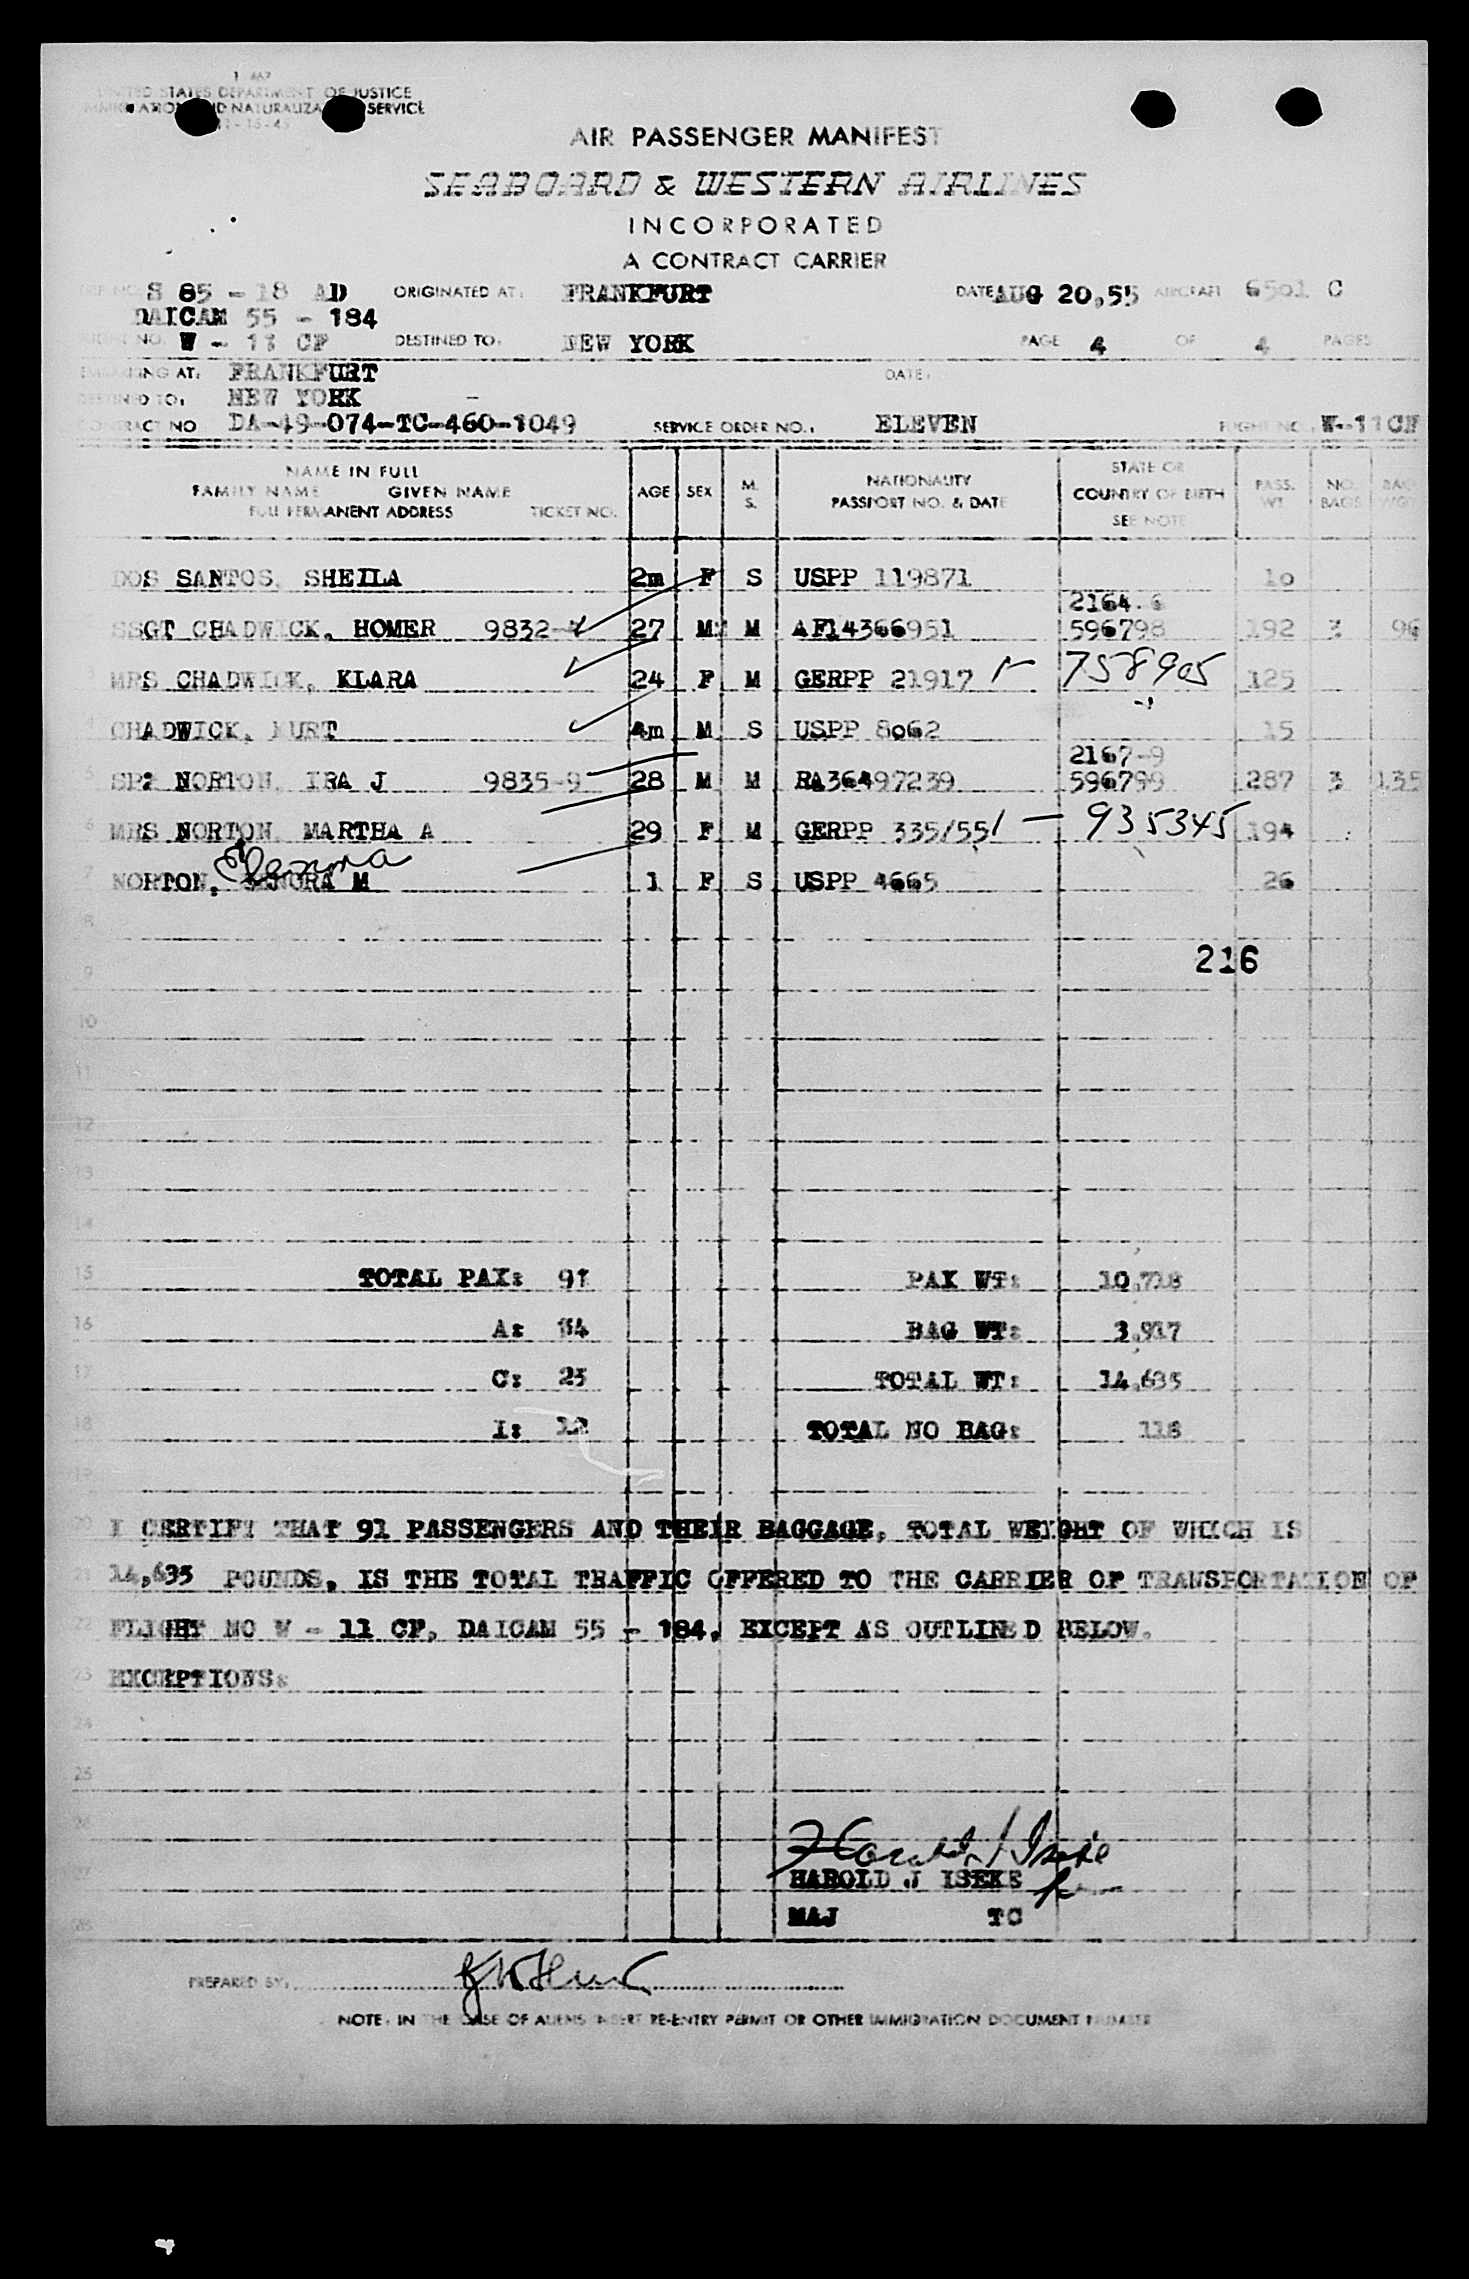 UNITED STATES DEPARTMENT OF JUSTICE
IMMIGRATION AND NATURALIZATION SERVICE
AIR PASSENGER MANIFEST
SEABOARD & WESTERN AIRLINES
INCORPORATED
A CONTRACT CARRIER
S 85 - 18 AD ORIGINATED AT: FRANKFURT DATE AUG 20,55 AIRCRAFT 6501 C
DAICAM 55 - 184
FLIGHT NO. W - 11 CF DESTINED TO: NEW YORK PAGE 4 OF 4 PAGES
EMBARKING AT: FRANKFURT DATE:
DESTINED TO: NEW YORK
CONTRACT NO DA-49-074-TC-460-1049 SERVICE ORDER NO.: ELEVEN FLIGHT NO.: W-11CF
NAME IN FULL
FAMILY NAME GIVEN NAME
FULL PERMANENT ADDRESS TICKET NO. AGE SEX M. S. NATIONALITY PASSPORT NO. & DATE STATE OR COUNTRY OF BIRTH SEE NOTE PASS. WT. NO. BAGS BAG WGT
DOS SANTOS, SHEILA 2m F S USPP 119871 10
2164.6
SSGT CHADWICK, HOMER 9832-4 27 M M AF14366951 596798 192 3 96
3 MRS CHADWICK, KLARA 24 F M GERPP 21917 758905 125
4 CHADWICK, KURT 4m M S USPP 8062 15
2167-9
5 SP2 NORTON, IRA J 9835-9 28 M M RA36497239 596799 287 3 135
6 MRS NORTON, MARTHA A 29 F M GERPP 335/55 935345 194
7 NORTON, M 1 F S USPP 4665 26
8
216
9
10
11
12
13
14
15 TOTAL PAX: 91 PAX WT: 10,718
16 A: 54 BAG WT: 3,917
17 C: 25 TOTAL WT: 14,635
18 I: 12 TOTAL NO BAG: 118
19
20 I CERTIFY THAT 91 PASSENGERS AND THEIR BAGGAGE, TOTAL WEIGHT OF WHICH IS
21 14,635 POUNDS, IS THE TOTAL TRAFFIC OFFERED TO THE CARRIER OF TRANSPORTATION OF
22 FLIGHT NO W - 11 CF, DAICAM 55 - 184, EXCEPT AS OUTLINED BELOW.
23 EXCEPTIONS:
24
25
26
Harold J Iseke
27 HAROLD J ISEKE
28 MAJ TC
PREPARED BY:
NOTE: IN THE CASE OF ALIENS INSERT RE-ENTRY PERMIT OR OTHER IMMIGRATION DOCUMENT NUMBER